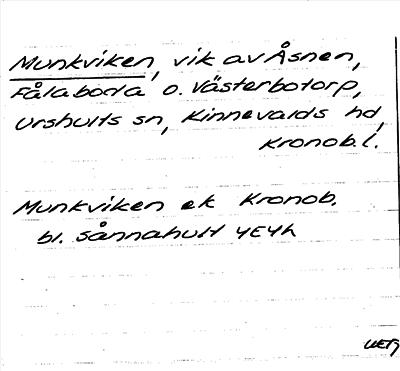 Munkviken, vik av Åsnen,
Fålaboda o. Västerbotorp,
Urshults sn, Kinnevalds hd,
Kronob. l.
Munkviken ek Kronob.
bl. Sånnahult 4E4h